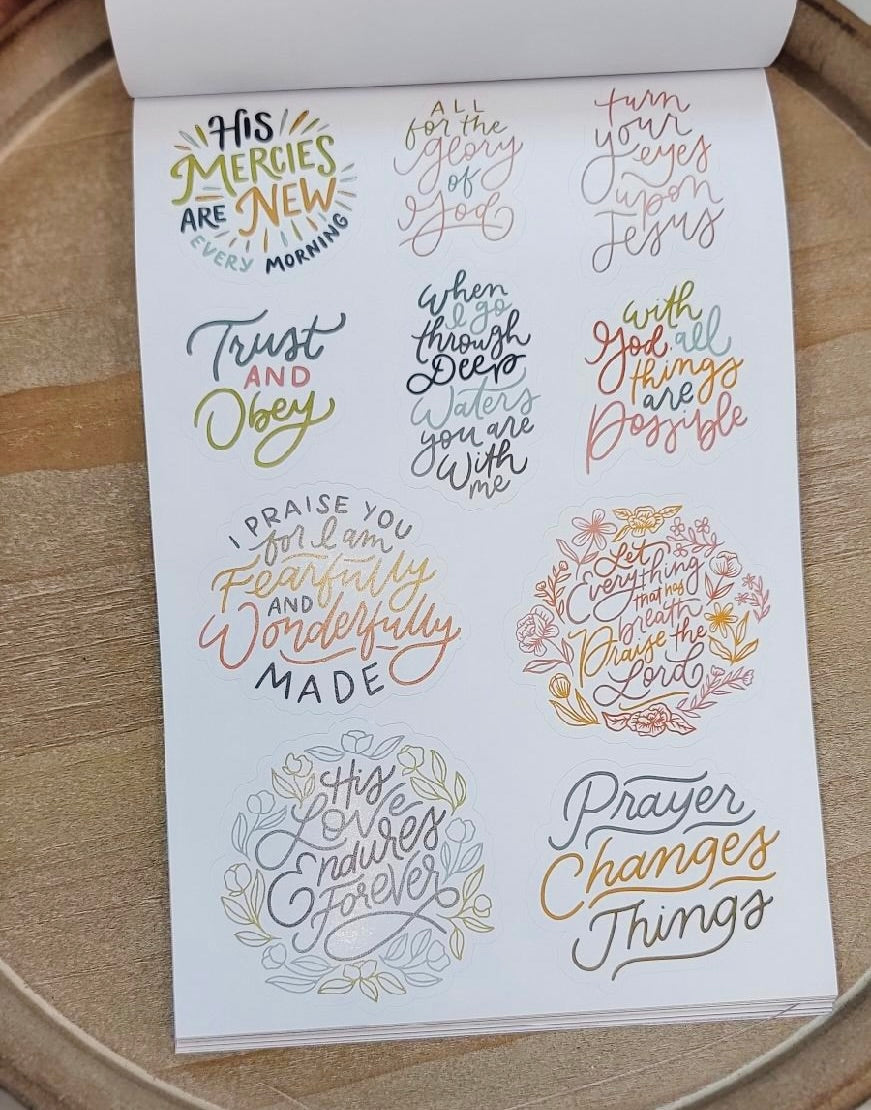 HIS
MERCIES
ARE NEW
EVERY MORNING
ALL
for the
glory
of
God
turn
your
eyes
upon
Jesus
Trust
AND
Obey
When
I go
through
Deep
Waters
you are
With
me
with
God all
things
are
Possible
I PRAISE YOU
for I am
Fearfully
AND
Wonderfully
MADE
Let
Everything
that has
breath
Praise the
Lord
His
Love
Endures
Forever
Prayer
Changes
Things